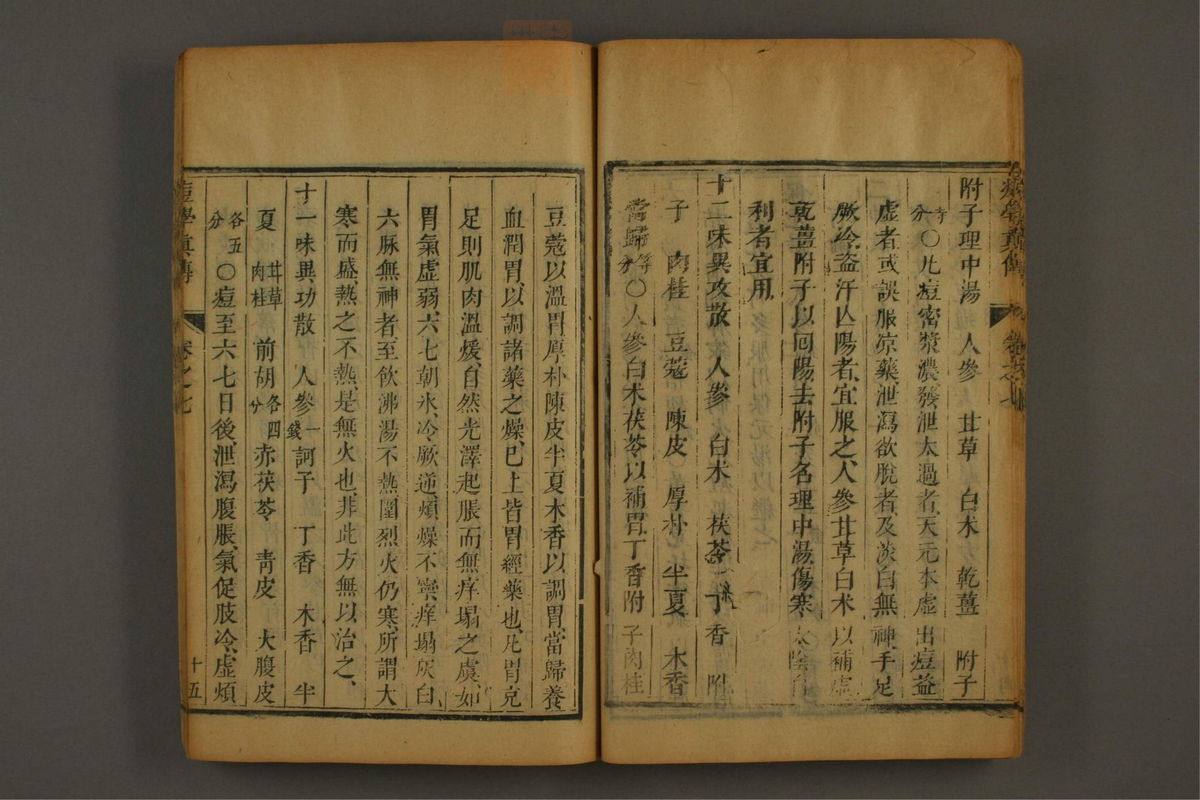 附子理中湯 人參 甘草 白朮 乾薑 附子
等分○凡痘密漿濃發泄太過者天元本虛出痘益
虛者或誤服凉藥泄瀉欲脫者及淡白無神手足
厥冷盗汗亾陽者宜服之人參甘草白朮以補虛
乾薑附子以囘陽去附子名理中湯傷寒太陰自
利者宜用
十二味異攻散 人參 白朮 茯苓 丁香 附
子 肉桂 豆蔻 陳皮 厚朴 半夏 木香
當歸等分○人參白朮茯苓以補胃丁香附子肉桂
豆蔻以溫胃厚朴陳皮半夏木香以調胃當歸養
血潤胃以調諸藥之燥已上皆胃經藥也凡胃充
足則肌肉溫煖自然光澤起脹而無痒塌之虞如
胃氣虛弱六七朝氷冷厥逆煩燥不寧痒塌灰白
六脉無神者至飲沸湯不熱圍烈火仍寒所謂大
寒而盛熱之不熱是無火也非此方無以治之
十一味異功散 人參一錢 訶子 丁香 木香 半
夏 甘草 肉桂 前胡各四分 赤茯苓 靑皮 大腹皮
各五分 ○痘至六七日後泄瀉腹脹氣促肢冷虛煩
痘學真傳 卷之七 十五